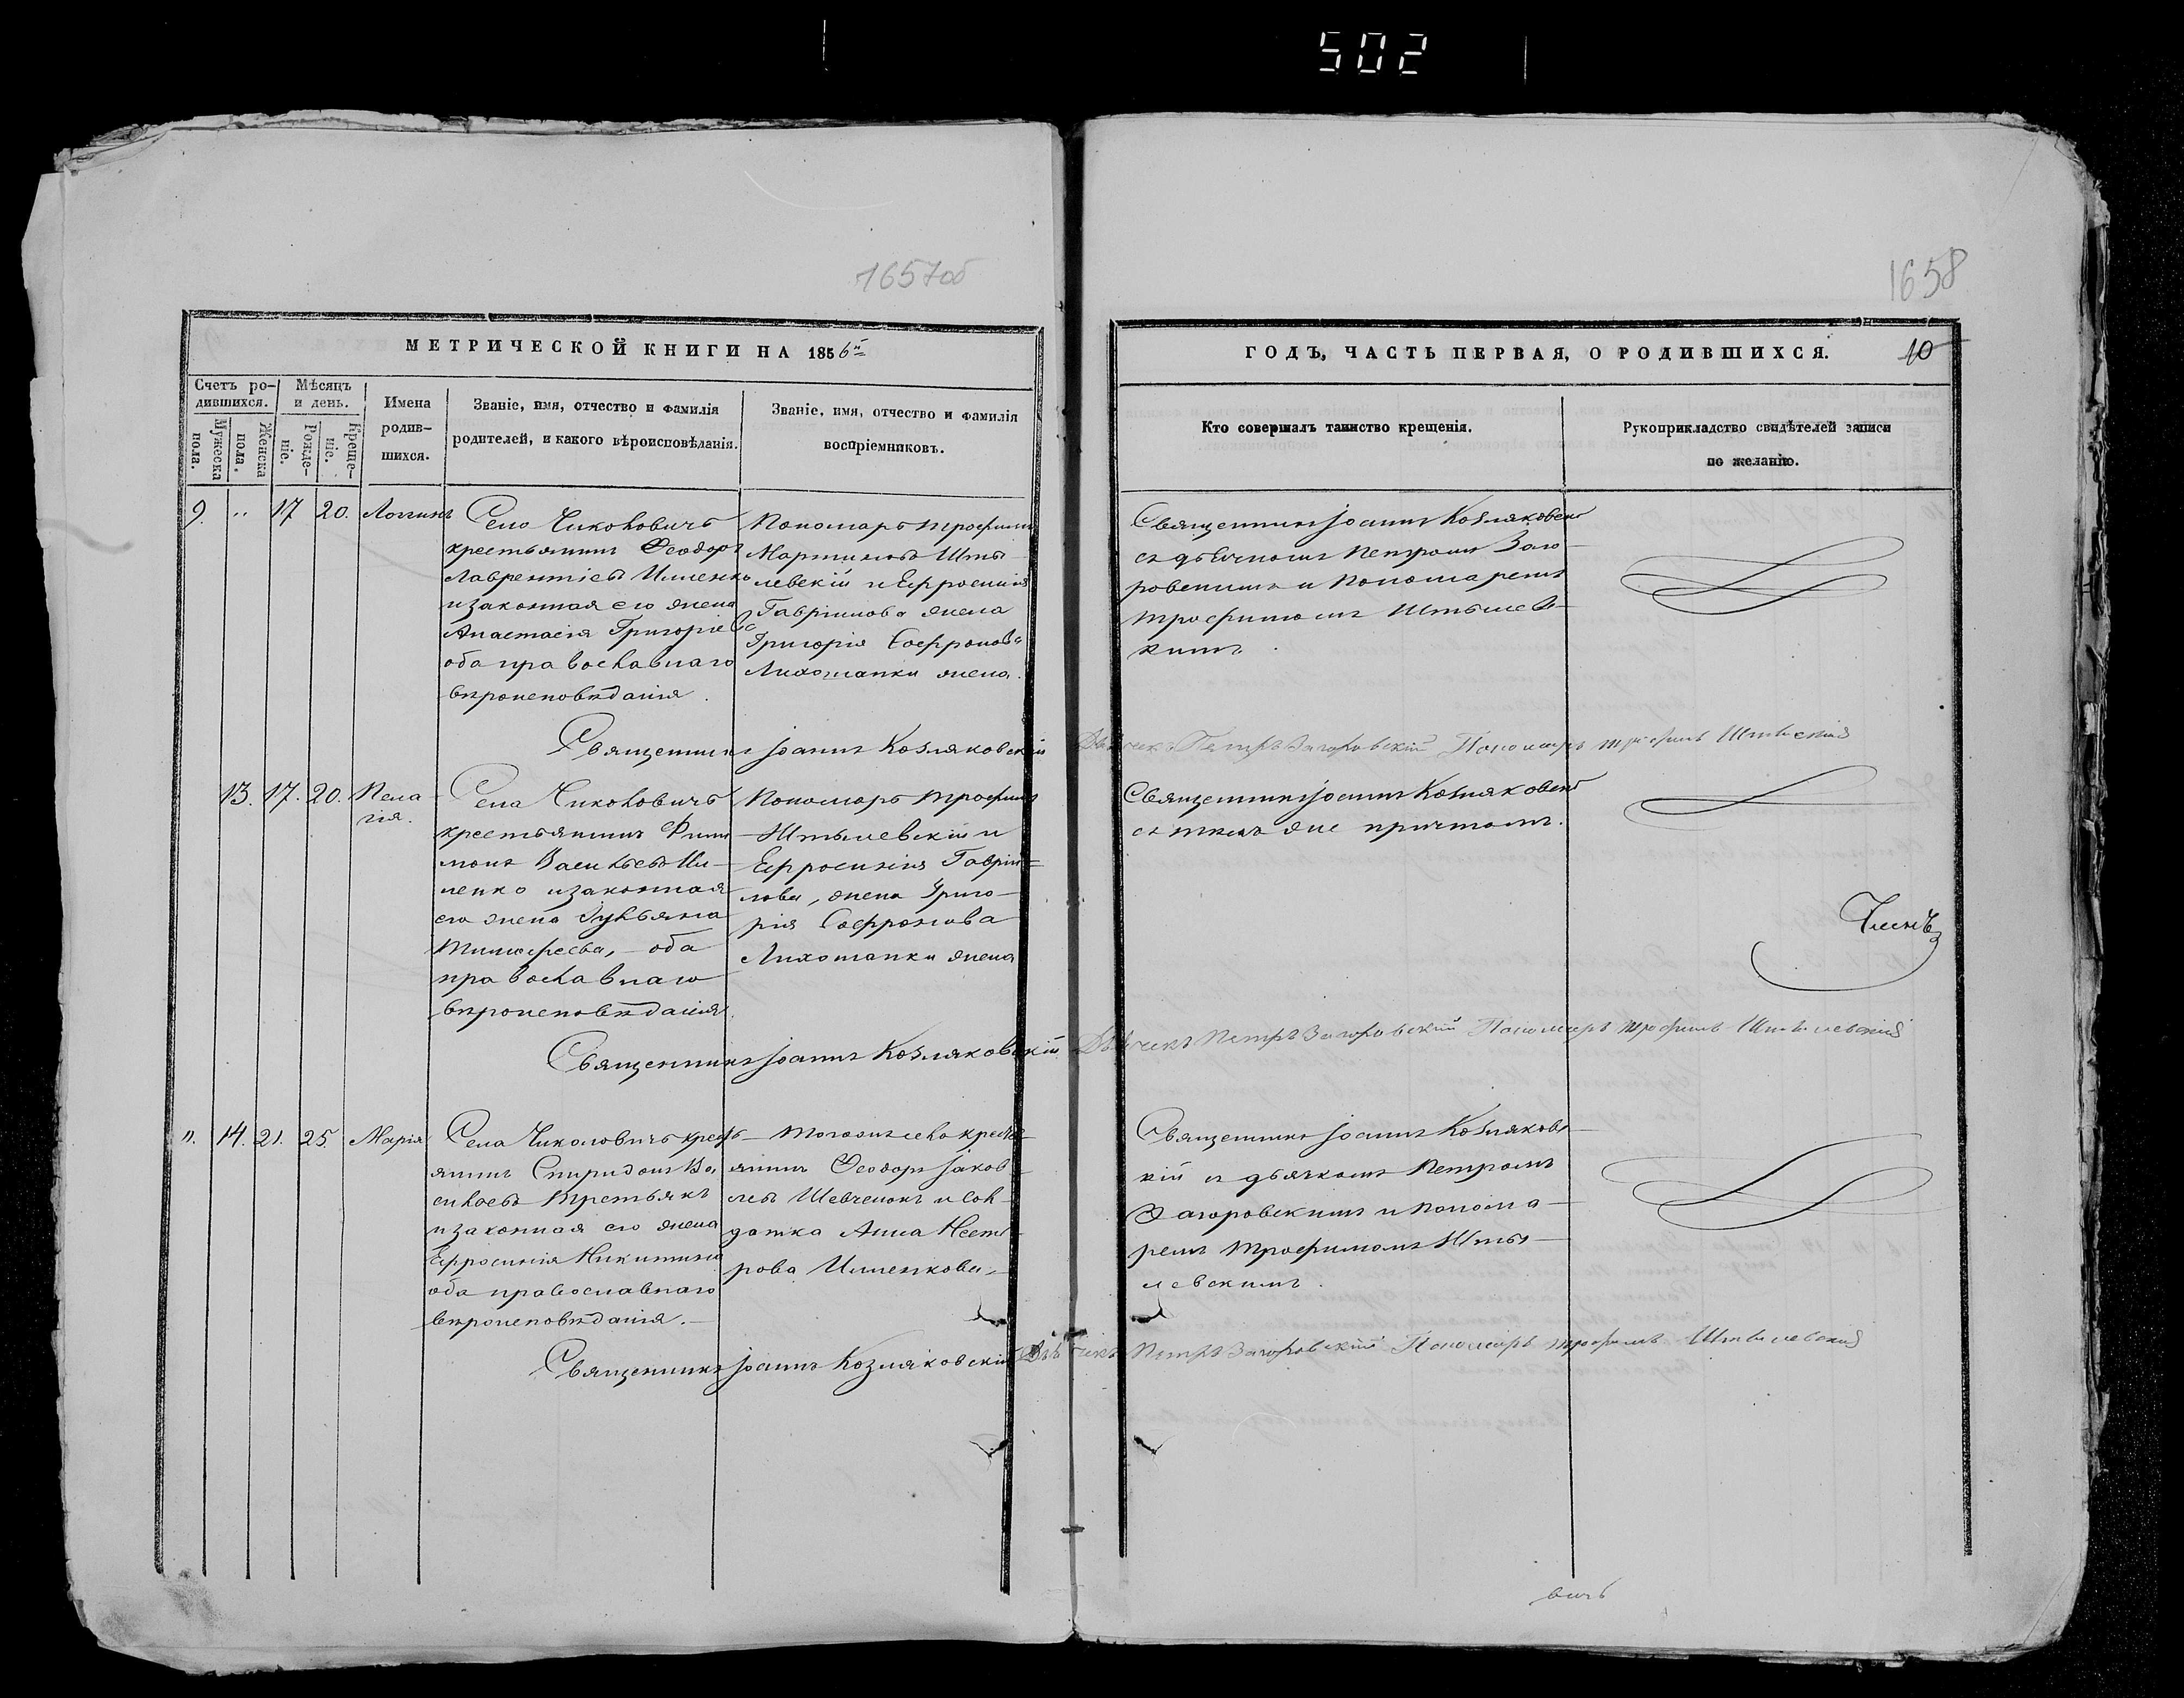 502
1657об
1658
МЕТРИЧЕСКОЙ КНИГИ НА 1856й
ГОДЪ, ЧАСТЬ ПЕРВАЯ, О РОДИВШИХСЯ. 10
Счетъ ро-
дившихся.
Мужеска
пола.
Женска
пола.
Мѣсяцъ
и день.
Рожде-
ніе.
Креще-
ніе.
Имена
родив-
шихся.
Званіе, имя, отчество и фамилія
родителей, и какого вѣроисповѣданія.
Званіе, имя, отчество и фамилія
воспріемниковъ.
Кто совершалъ таинство крещенія.
Рукоприкладство свидѣтелей записи
по желанію.
9. " 17 20. Логгинъ
Село Чиколовичъ
крестьянинъ Феодоръ
Лаврентіевъ
и законная его жена
Анастасія Григорiева
оба православнаго
вѣроисповѣданія.
Пономарь Трофимъ
Мартиновъ Шты-
левскій и Ефросинія
Гавріилова жена
Григорія Софронова
Лихоманки жена.
Священникъ Іоаннъ Козляковскій
съ дьячкомъ Петромъ Заго-
ровскимъ и Пономаремъ
Трофимомъ Штылевс-
кимъ.
Священникъ Іоаннъ Козляковскій Дьячекъ Петръ Загоровскій Пономарь Трофимъ Штылевскій
13. 17. 20. Пела-
гія.
Села Чиколовичъ
крестьянинъ Фили-
монъ Васильевъ
и законная
его жена Ульяна
Тимофеева, - оба
православнаго
вѣроисповѣданія.
Пономарь Трофимъ
Штылевскій и
Ефросинія Гавріи-
лова, жена Григо-
рія Софронова
Лихоманки жена
Священникъ Іоаннъ Козляковскій
съ тѣмъ же причтомъ.
Членъ
Священникъ Іоаннъ Козляковскій Дьячекъ Петръ Загоровскій Пономарь Трофимъ Штылевскій
". 14. 21. 25. Марія
Села Чиколовичъ кресть-
янинъ Спиридонъ Ва-
сильевъ Третьякъ
и законная его жена
Ефросинія Никитина
оба православнаго
вѣроисповѣданія. -
Тогожъ села кресть-
янинъ Феодоръ Іаков-
левъ Шевченокъ и сол-
датка Анна Несто-
рова Ильенкова. -
Священникъ Іоаннъ Козляковс-
кій съ дьячкомъ Петромъ
Загоровскимъ и Понома-
ремъ Трофимомъ Шты-
левскимъ.
Священникъ Іоаннъ Козляковскій Дьячекъ Петръ Загоровскій Пономарь Трофимъ Штылевскій
вичъ